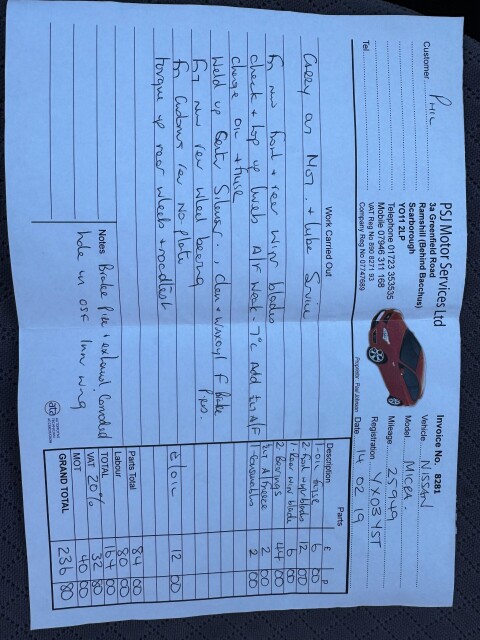 PSJ Motor Services Ltd
3a Greenfield Road
Ramshill (Behind Bacchus)
Scarborough
YO11 2LP
Telephone 01723 353535
Mobile 07946 311 168
VAT Reg No 850 8271 93
Company Reg No 07747689
Customer PHIL
Tel
Invoice No. 8281
Vehicle NISSAN
Model MICRA
Mileage 25949
Registration YX03YST
Date 14 02 19
Work Carried Out
Carry out MOT. + Lube Service
Fit new front + rear wiper blades
check + top up levels A/F Week - 7°c add 1Ltr A/F
change oil + filter
Weld up Centre Silencer, clean + Waxoyl F Brake
Pipes.
Fit new rear wheel bearing
Fit Customers rear No plate
torque up rear wheels + roadtest
Notes Brake Pipe + exhaust Corroded
hole in OSF Inn wing
Parts
Description £ p
1-Oil filter 6 00
2-front wiper blades 12 00
1 Rear wiper blade 6 00
2 Bearings 44 00
1Ltr A/freeze 2 00
F-consumables 2 00
E/OIL 12 00
Parts Total 84 00
Labour 80 00
TOTAL 164 00
VAT 20% 32 80
MOT 40 00
GRAND TOTAL 236 80